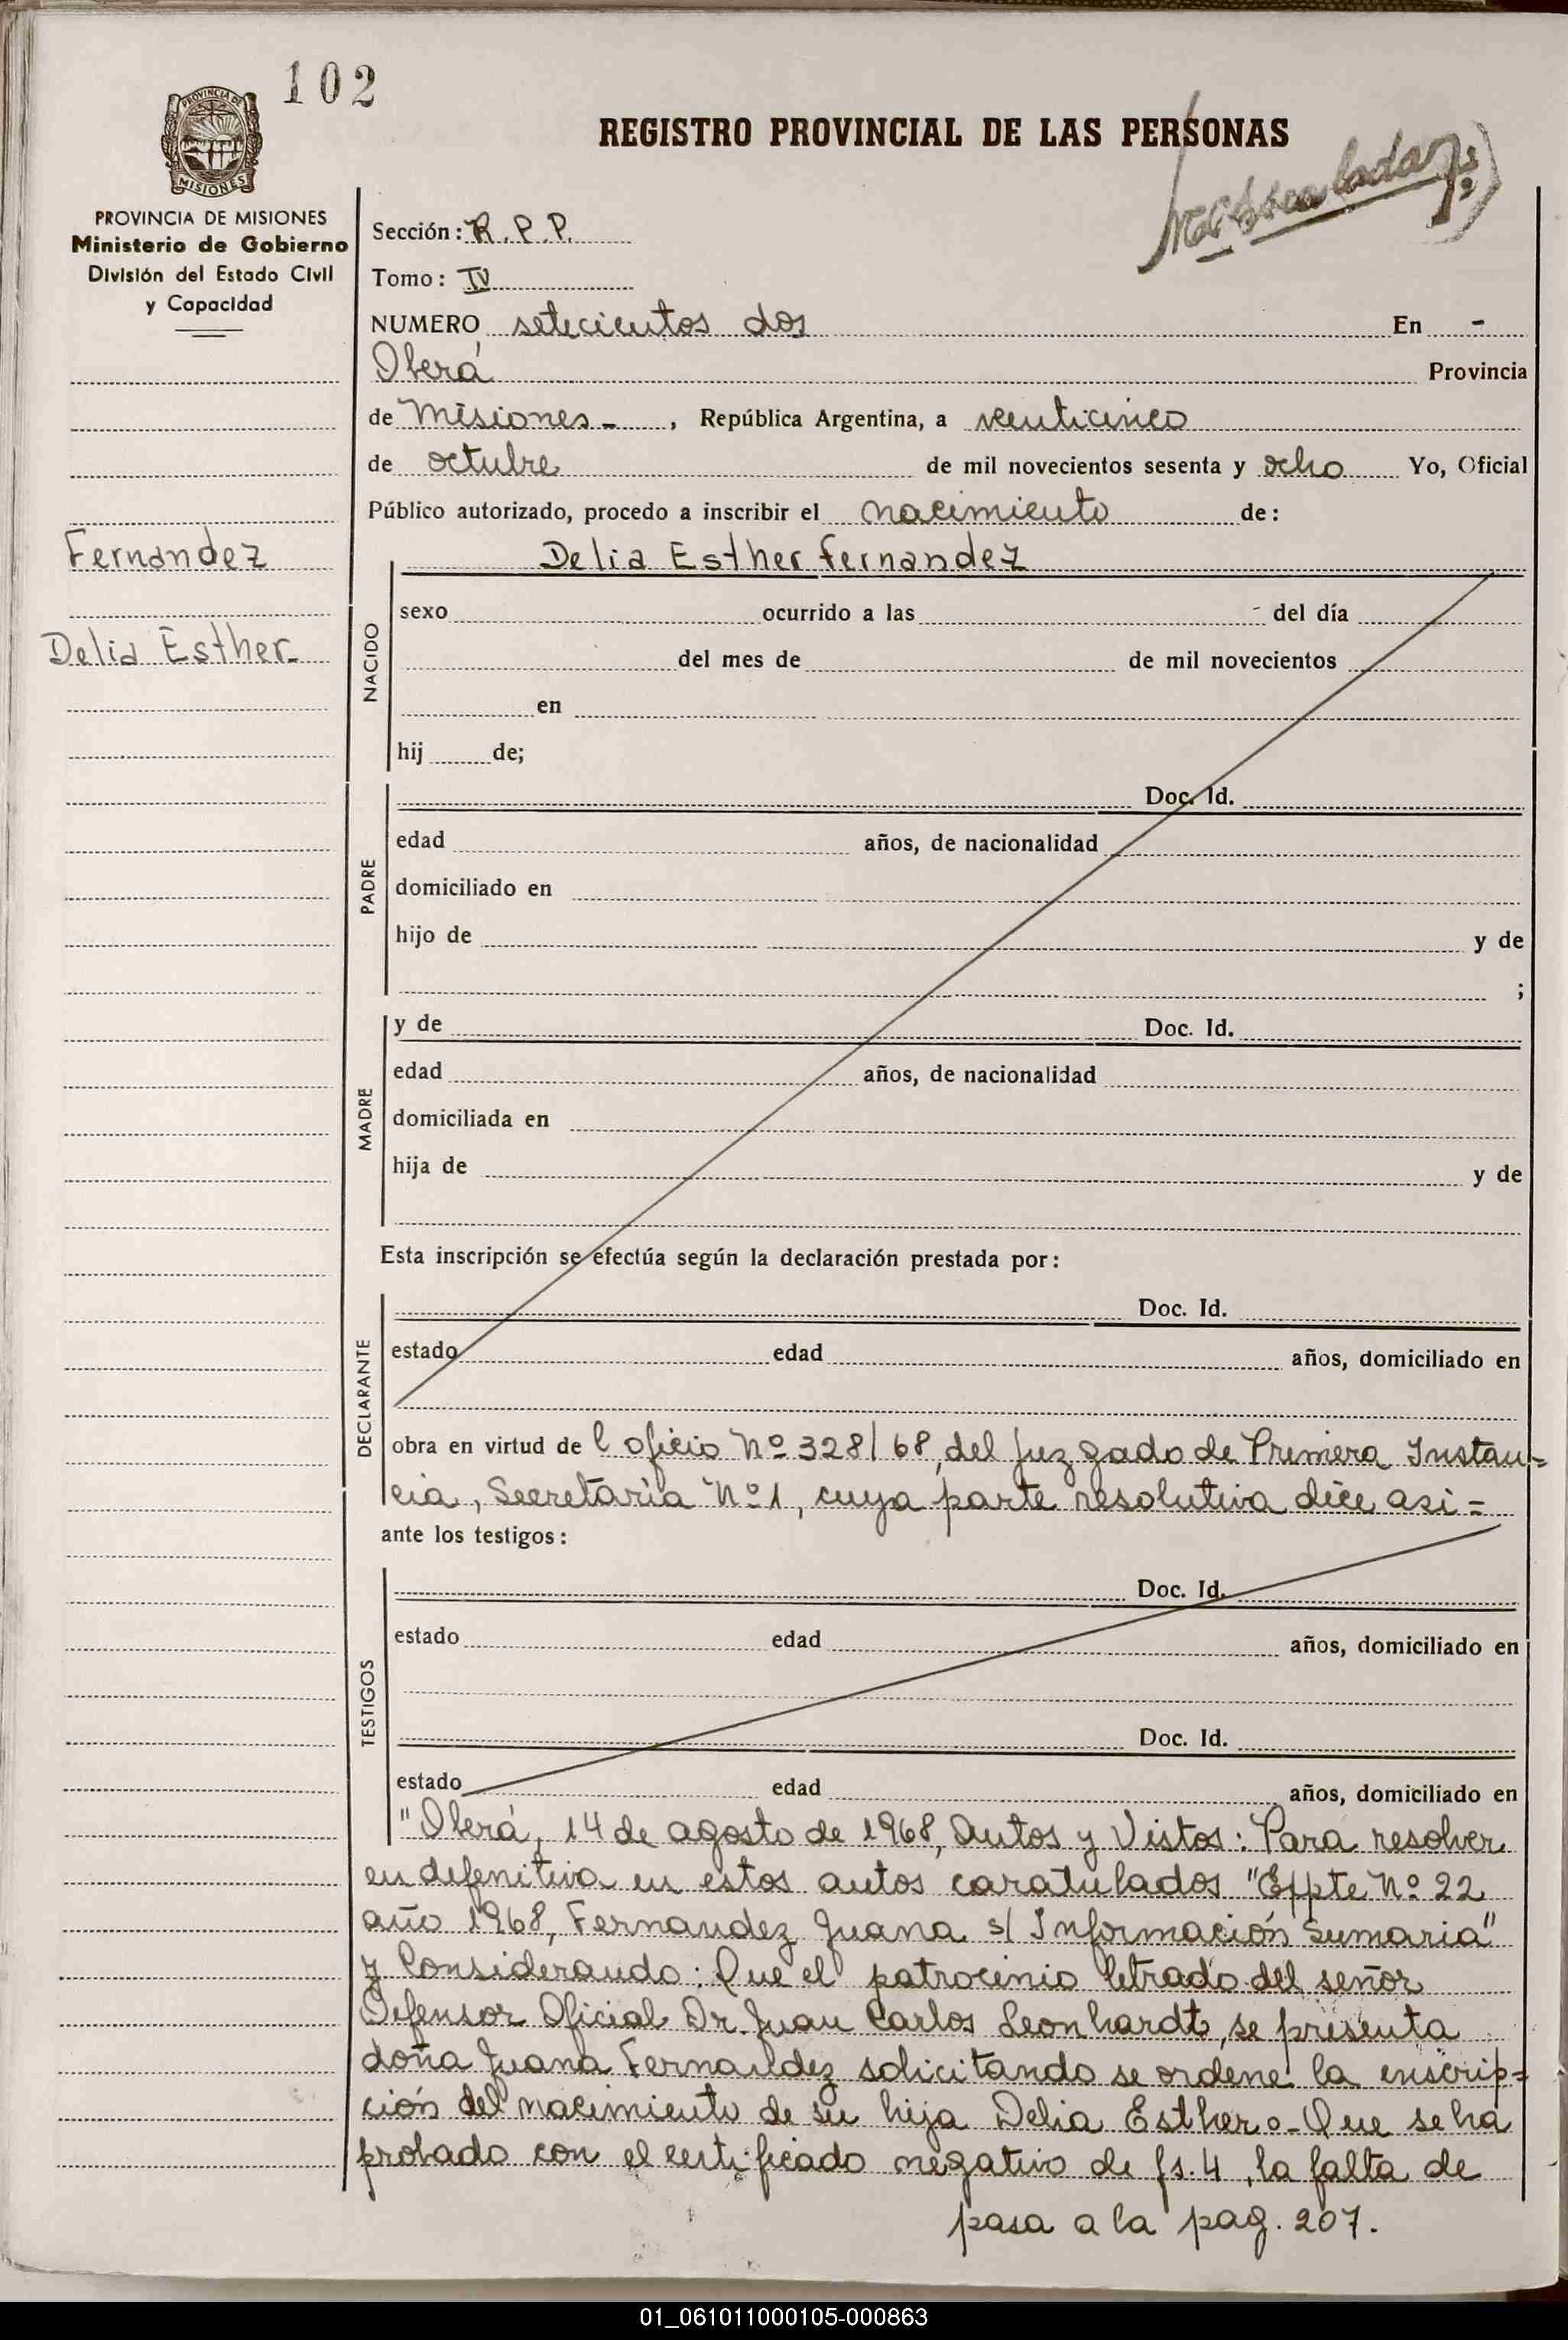 102
PROVINCIA DE
MISIONES
REGISTRO PROVINCIAL DE LAS PERSONAS
PROVINCIA DE MISIONES
Ministerio de Gobierno
División del Estado Civil
y Capacidad
Sección: R.P.P.
Tomo: IV
NUMERO setecientos dos En -
Oberá Provincia
de Misiones - , República Argentina, a veinticinco
de octubre de mil novecientos sesenta y ocho Yo, Oficial
Público autorizado, procedo a inscribir el nacimiento de:
Fernandez
Delia Esther Fernandez
Delia Esther-
NACIDO
sexo ocurrido a las del día
del mes de de mil novecientos
en
hij de;
PADRE
Doc. Id.
edad años, de nacionalidad
domiciliado en
hijo de y de
;
MADRE
y de Doc. Id.
edad años, de nacionalidad
domiciliada en
hija de y de
Esta inscripción se efectúa según la declaración prestada por:
DECLARANTE
Doc. Id.
estado edad años, domiciliado en
obra en virtud de l oficio Nº 328/68, del Juzgado de Primera Instan=
cia, Secretaría Nº 1, cuya parte resolutiva dice asi=
ante los testigos:
TESTIGOS
Doc. Id.
estado edad años, domiciliado en
Doc. Id.
estado edad años, domiciliado en
"Oberá, 14 de agosto de 1968, Autos y Vistos: Para resolver
en defenitiva en estos autos caratulados "Expte Nº 22
año 1968, Fernandez Juana s/ Información Sumaria"
y Considerando: Que el patrocinio letrado del señor
Defensor Oficial Dr. Juan Carlos Leonhardt, se presenta
doña Juana Fernandez solicitando se ordene la inscrip=
ción del nacimiento de su hija Delia Esther.- Que se ha
probado con el certificado negativo de fs. 4, la falta de
pasa a la pag. 207.
01_061011000105-000863